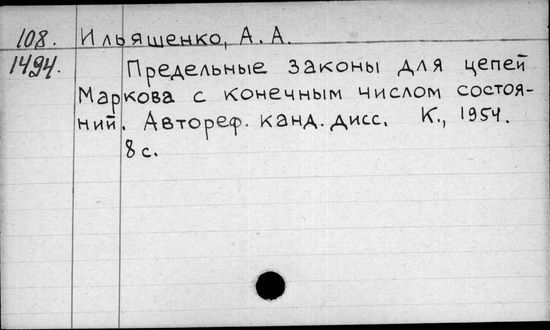 108. Ильяшенко, А. А.
1494. Предельные законы для цепей
Маркова с конечным числом состоя-
ний. Автореф. канд. дисс. К., 1954.
8 с.